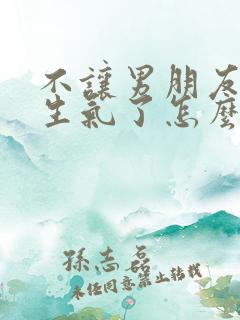 不讓男朋友
生氣了怎麼
孫志磊
未经同意禁止转载